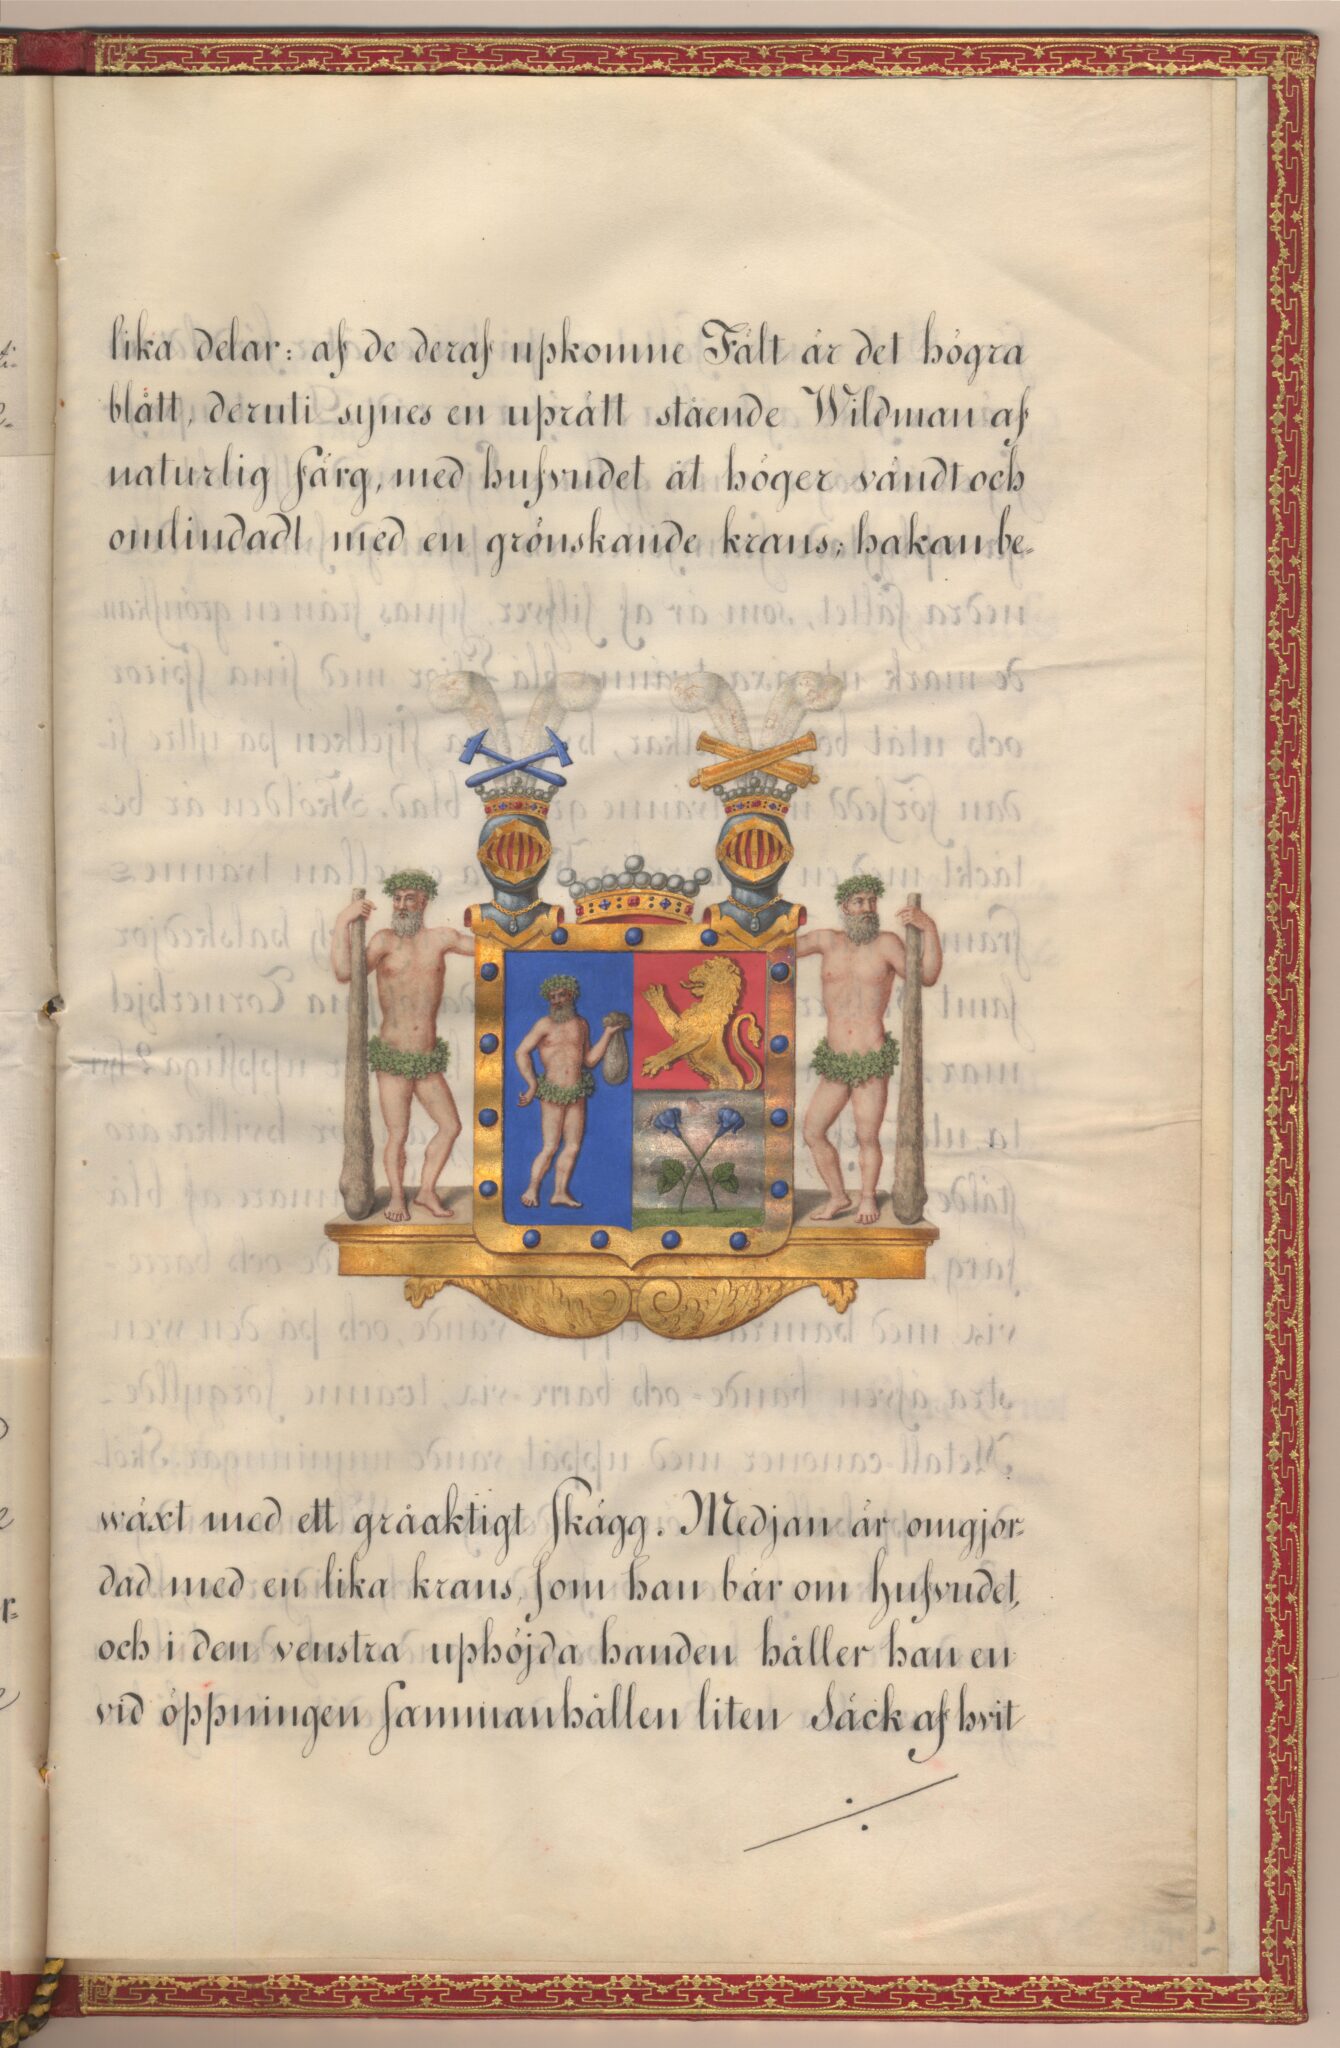 lika delar: af de deraf upkomne Fält är det högra
blått, deruti synes en uprätt stående Wildman af
naturlig färg, med hufvudet åt höger vändt och
omlindadt med en grönskande krans; hakan be-
wäxt med ett gråaktigt skägg. Medjan är omgjor-
dad med en lika krans, som han bär om hufvudet,
och i den venstra uphöjda handen håller han en
vid öppningen sammanhållen liten Säck af hvit